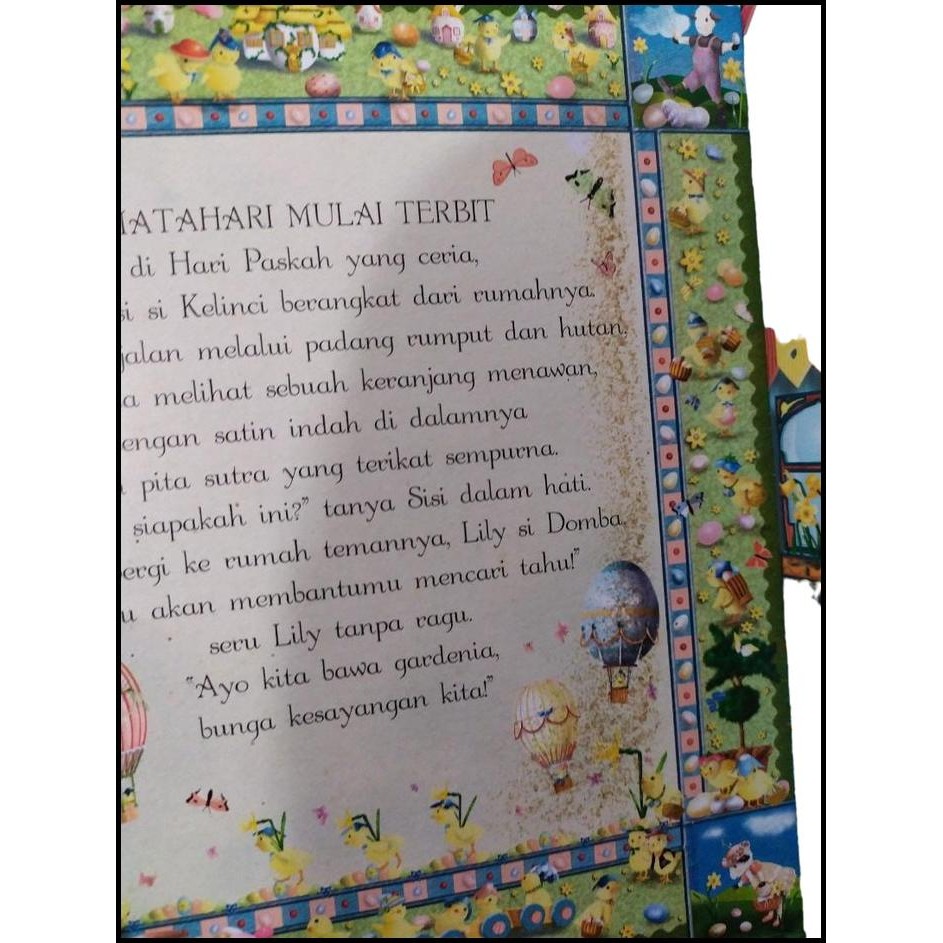 MATAHARI MULAI TERBIT
di Hari Paskah yang ceria,
si Kelinci berangkat dari rumahnya.
jalan melalui padang rumput dan hutan,
melihat sebuah keranjang menawan,
engan satin indah di dalamnya
pita sutra yang terikat sempurna.
siapakah ini?" tanya Sisi dalam hati.
ergi ke rumah temannya, Lily si Domba,
u akan membantumu mencari tahu!"
seru Lily tanpa ragu.
"Ayo kita bawa gardenia,
bunga kesayangan kita!"